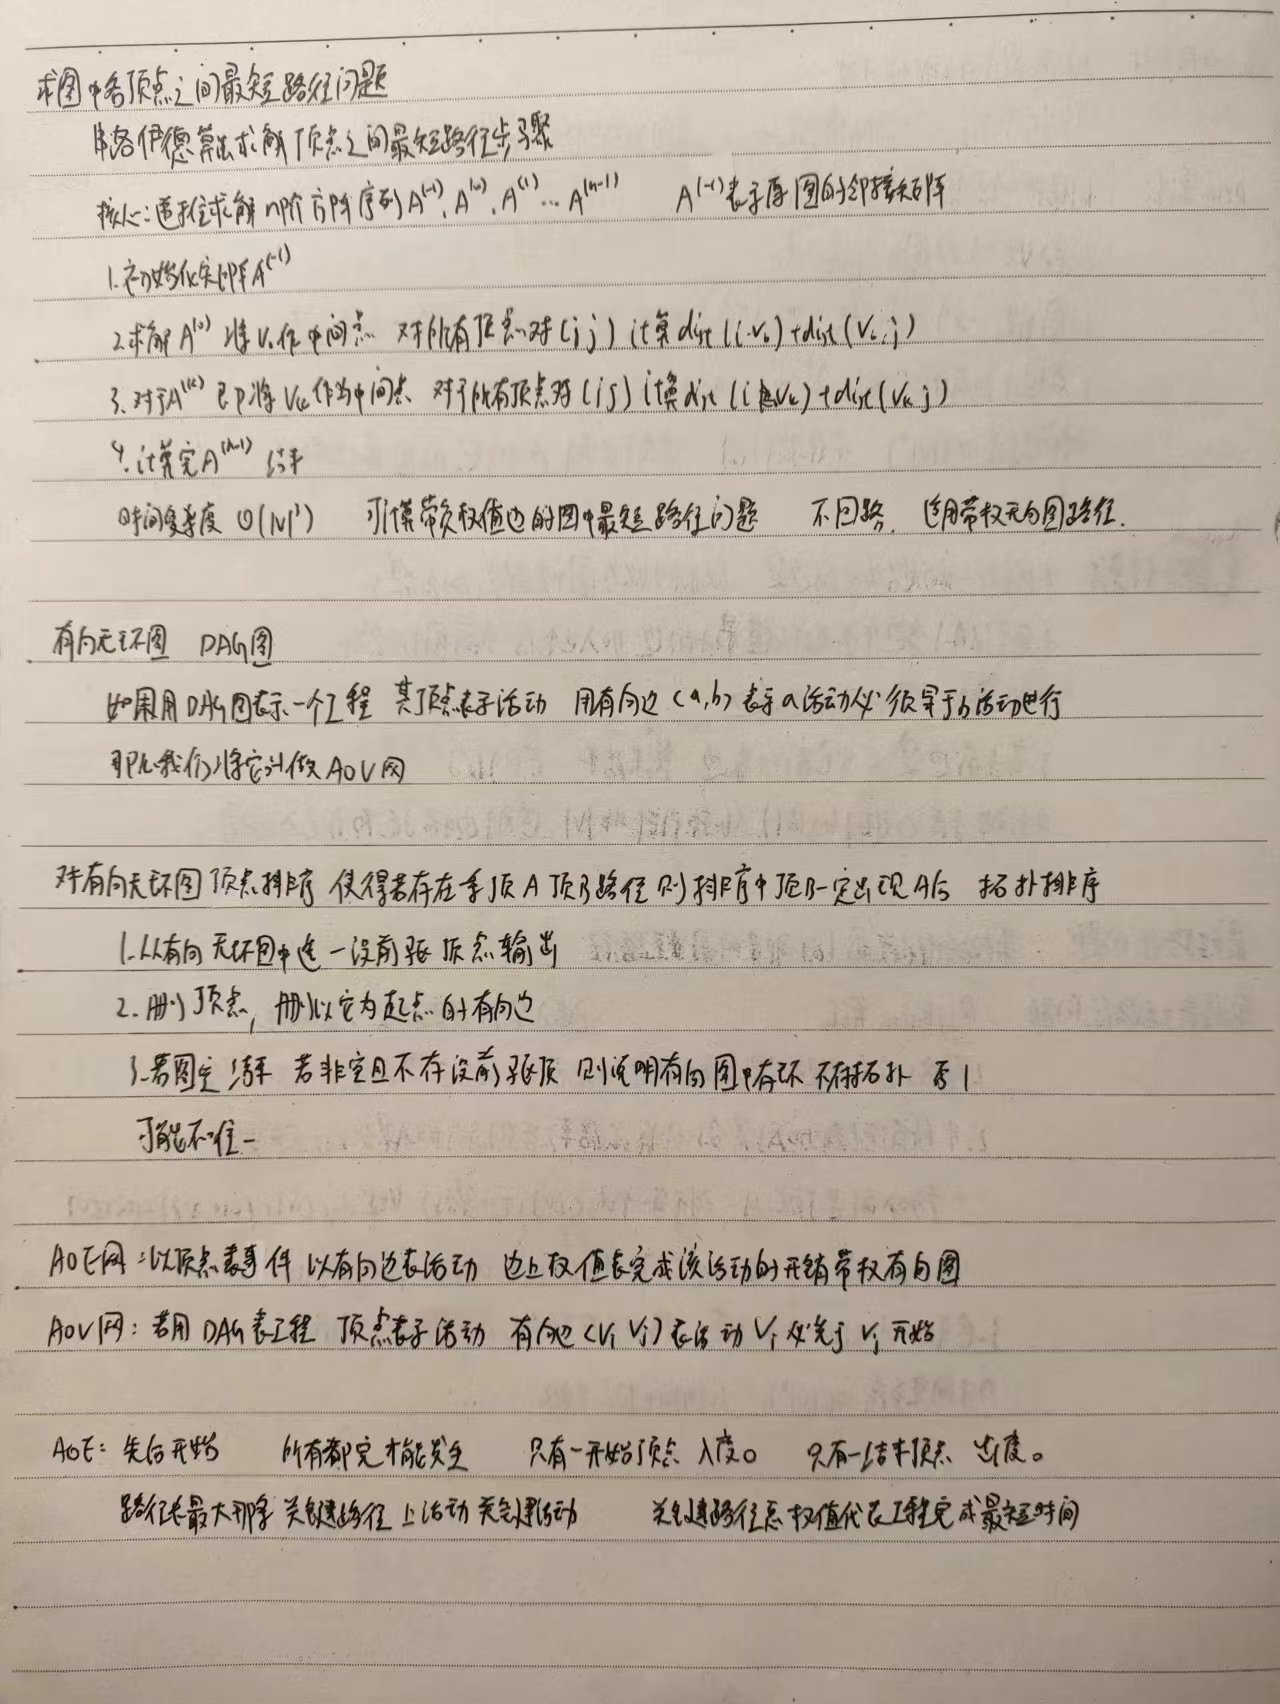 求图中各顶点之间最短路径问题
弗洛伊德算法求解顶点之间最短路径步骤
核心:递推求解n阶方阵序列A⁽⁻¹⁾、A⁽⁰⁾、A⁽¹⁾…A⁽ⁿ⁻¹⁾ A⁽⁻¹⁾表示原图的邻接矩阵
1.初始化矩阵A⁽⁻¹⁾
2.求解A⁽⁰⁾ 将V₀作中间点 对所有顶点对(i j) 计算dist(i.v₀)+dist(V₀.j)
3.对于A⁽ᵏ⁾ 即将Vk作为中间点 对于所有顶点对(i j) 计算dist(i Vk)+dist(Vk j)
4.计算完A⁽ⁿ⁻¹⁾ 结束
时间复杂度 O(|V|³) 可计算带负权值边的图中最短路径问题 不回路. 适用带权无向图路径.
有向无环图 DAG图
如果用DAG图表示一个工程 其顶点表示活动 用有向边<a,b>表示a活动必须早于b活动进行
那么我们将它叫做AOV网
对有向无环图顶点排序 使得若存在 顶A 顶B路径 则排序中顶B一定出现A后 拓扑排序
1.从有向无环图中选一没前驱顶点输出
2.删顶点, 删以它为起点的有向边
3.若图空 结束 若非空且不存没前驱顶 则说明有向图中有环 不存拓扑 否1
可能不唯一
AOE网:以顶点表事件 以有向边表活动 边上权值表完成该活动的开销带权有向图
AOV网:若用DAG表工程 顶点表示活动 有向边<Vi Vj>表活动Vi必先于Vj开始
AOE: 先后开始 所有都完才能发生 只有一开始顶点 入度0 只有一结束顶点 出度0
路径长最大那条 关键路径 上活动 关键活动 关键路径总权值代表工程完成最短时间